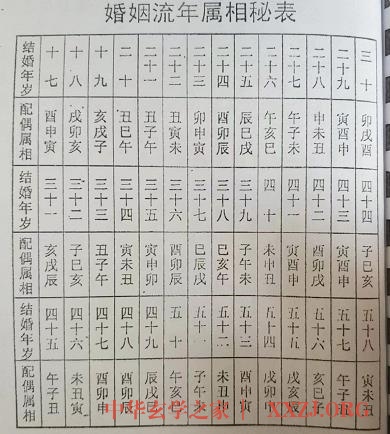 婚姻流年属相秘表
结婚年岁 十七 十八 十九 二十 二十一 二十二 二十三 二十四 二十五 二十六 二十七 二十八 二十九 三十
配偶属相 酉申寅 戌卯亥 亥戌子 丑巳午 丑子午 丑寅未 卯申寅 酉卯辰 辰巳戌 午亥巳 午子未 申未丑 寅酉申 卯戌酉
结婚年岁 三十一 三十二 三十三 三十四 三十五 三十六 三十七 三十八 三十九 四十 四十一 四十二 四十三 四十四
配偶属相 亥戌辰 子巳亥 丑子午 寅未丑 寅申卯 酉卯辰 巳辰戌 巳亥午 子午未 未申丑 寅酉申 酉卯 寅辰 子巳亥
结婚年岁 四十五 四十六 四十七 四十八 四十九 五十 五十一 五十二 五十三 五十四 五十五 五十六 五十七 五十八
配偶属相 午子丑 未丑寅 酉卯申 酉卯 辰戌 午亥 子午 未丑 酉申 戌卯 戌辰亥 亥巳子 午子丑 寅丑未
中华玄学之家 XXZJ.ORG